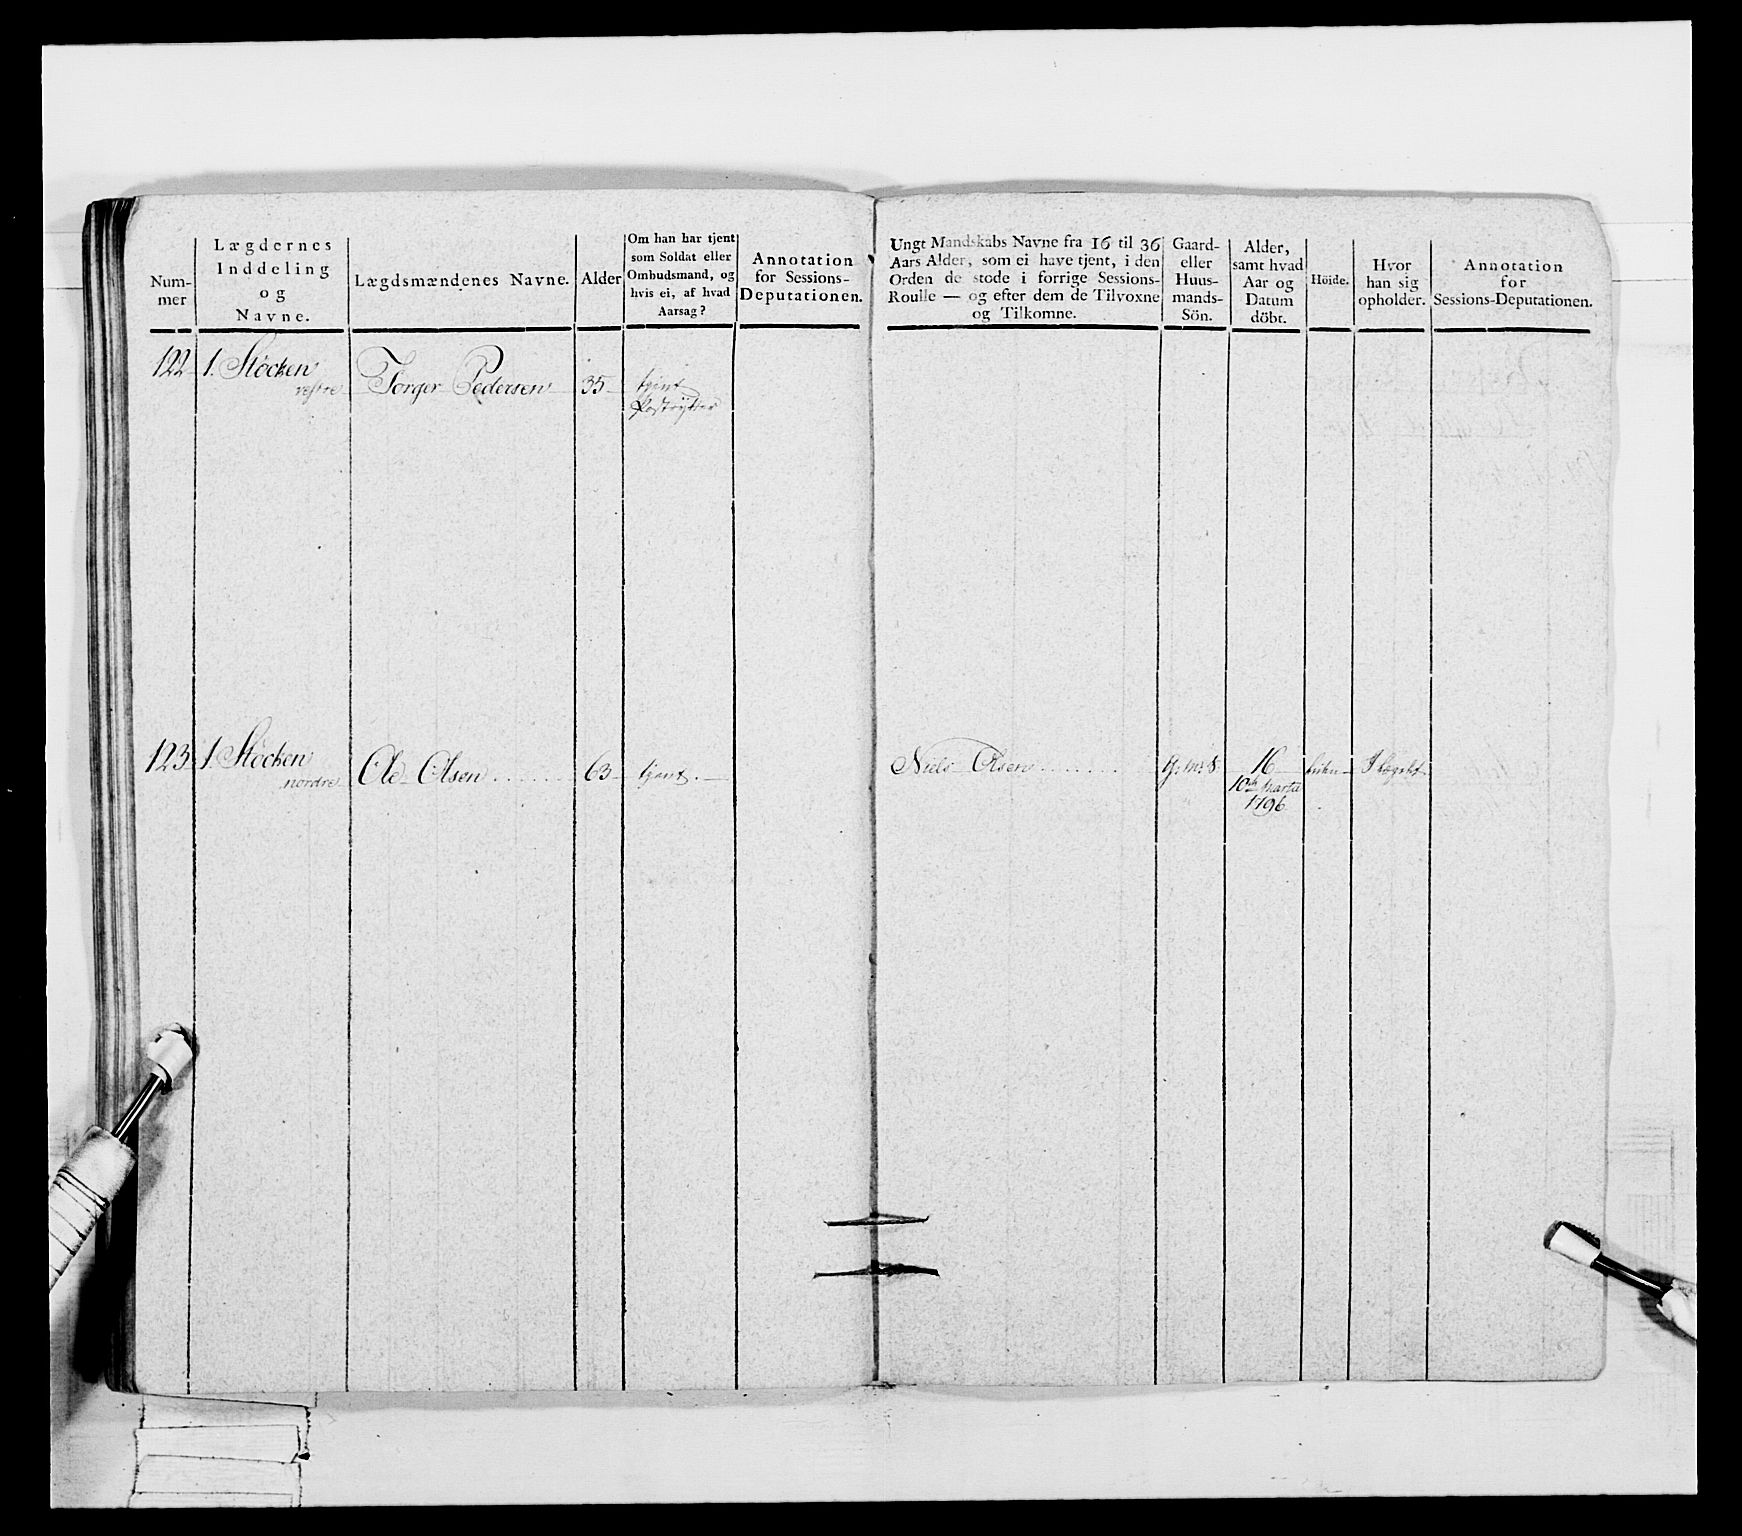 Num-
mer
Lægdernes
Inddeling
og
Navne.
Lægdsmændenes Navne.
Alder
Om han har tjent
som Soldat eller
Ombudsmand, og
hvis ei, af hvad
Aarsag?
Annotation
for Sessions-
Deputationen.
Ungt Mandskabs Navne fra 16 til 36
Aars Alder, som ei have tjent, i den
Orden de stode i forrige Sessions-
Roulle — og efter dem de Tilvoxne
og Tilkomne.
Gaard-
eller
Huus-
mands-
Sön.
Alder,
samt hvad
Aar og
Datum
döbt.
Höide.
Hvor
han sig
opholder.
Annotation
for
Sessions-Deputationen.
122 1. Stöcken
vestre Torger Pedersen 35 tjent
Postrytter
123 1. Stöcken
nordre Ole Olsen 63 tjent
Niels Olsen G. m. S. 16 I Lægdet
10de Martii
1796